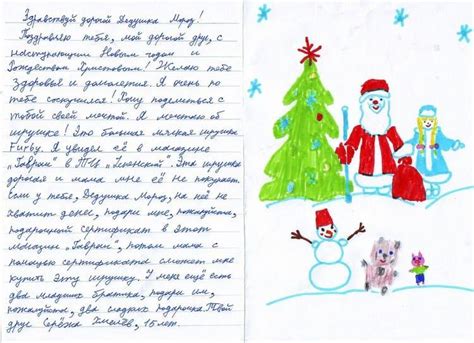 Здравствуй дорогой Дедушка Мороз!
Поздравляю тебя, мой дорогой друг, с
наступающим Новым годом и
Рождеством Христовым! Желаю тебе
здоровья и долголетия. Я очень по
тебе соскучился! Хочу поделиться с
тобой своей мечтой. Я мечтаю об
игрушке! Это большая мягкая игрушка
Furby. Я увидел её в магазине
"Гаврош" в ТЦ Эта игрушка
дорогая и мама мне её не покупает.
Если у тебя, Дедушка Мороз, на неё не
хватит денег, подари мне, пожалуйста,
подарочный сертификат в этот
магазин "Гаврош", потом мама с
помощью сертификата сможет мне
купить эту игрушку. У меня ещё есть
два младших братика, подари им,
пожалуйста, два сладких подарочка. Твой
друг Серёжа 15 лет.